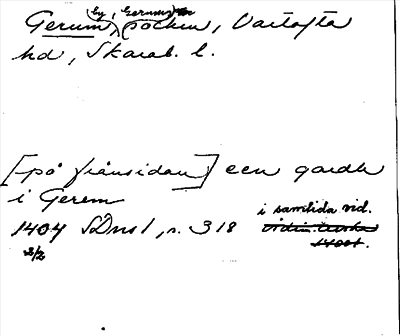 Gerum (by, Gerums socken, Vartofta
hd, Skarab. l.
[på frånsidan] een gardh
i Gerem
1404 SDns 1, s. 318 i samtida vid.
2/2